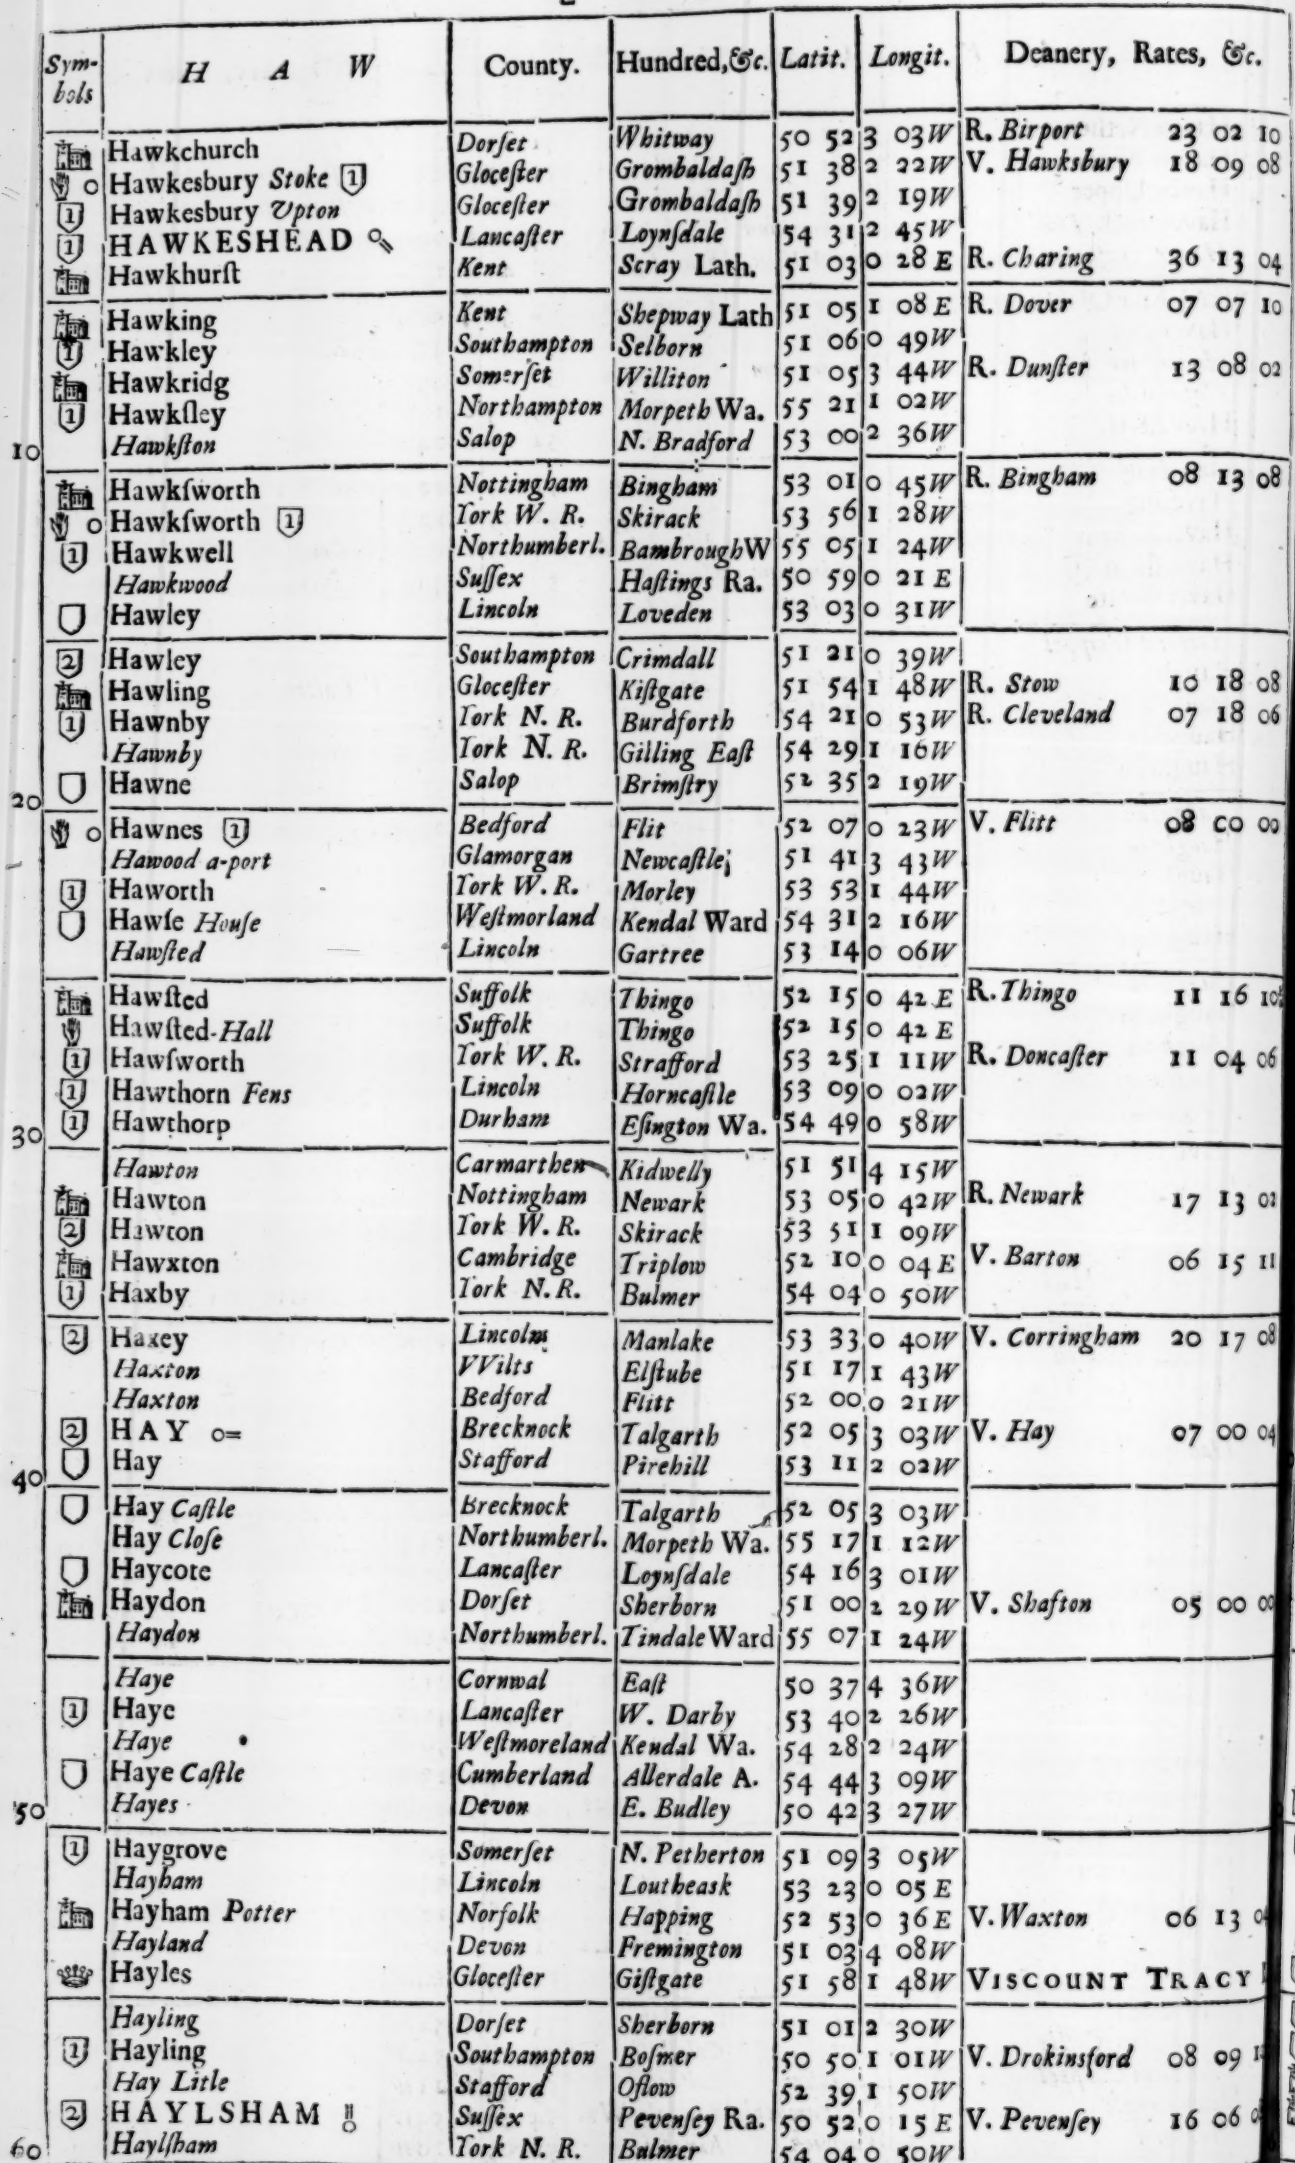 Sym-bols H A W County. Hundred, &c. Latit. Longit. Deanery, Rates, &c.
Hawkchurch Dorſet Whitway 50 52 3 03 W R. Birport 23 02 10
Hawkesbury Stoke 1 Gloceſter Grombaldaſh 51 38 2 22 W V. Hawksbury 18 09 08
1 Hawkesbury Upton Gloceſter Grombaldaſh 51 39 2 19 W
1 HAWKESHEAD Lancaſter Loynſdale 54 31 2 45 W
Hawkhurſt Kent Scray Lath. 51 03 0 28 E R. Charing 36 13 04
Hawking Kent Shepway Lath 51 05 1 08 E R. Dover 07 07 10
1 Hawkley Southampton Selborn 51 06 0 49 W
Hawkridg Somerſet Williton 51 05 3 44 W R. Dunſter 13 08 02
1 Hawkſley Northampton Morpeth Wa. 55 21 1 02 W
10 Hawkſton Salop N. Bradford 53 00 2 36 W
Hawkſworth Nottingham Bingham 53 01 0 45 W R. Bingham 08 13 08
Hawkſworth 1 York W. R. Skirack 53 56 1 28 W
1 Hawkwell Northumberl. Bambrough W 55 05 1 24 W
Hawkwood Suſſex Haſtings Ra. 50 59 0 21 E
Hawley Lincoln Loveden 53 03 0 31 W
2 Hawley Southampton Crimdall 51 21 0 39 W
Hawling Gloceſter Kiſtgate 51 54 1 48 W R. Stow 10 18 08
1 Hawnby York N. R. Burdforth 54 21 0 53 W R. Cleveland 07 18 06
Hawnby York N. R. Gilling Eaſt 54 29 1 16 W
20 Hawne Salop Brimſtry 52 35 2 19 W
Hawnes 1 Bedford Flit 52 07 0 23 W V. Flitt 08 00 00
Hawood a-port Glamorgan Newcaſtle; 51 41 3 43 W
1 Haworth York W. R. Morley 53 53 1 44 W
Hawſe Houſe Weſtmorland Kendal Ward 54 31 2 16 W
Hawſted Lincoln Gartree 53 14 0 06 W
Hawſted Suffolk Thingo 52 15 0 42 E R. Thingo 11 16 10
Hawſted-Hall Suffolk Thingo 52 15 0 42 E
1 Hawſworth York W. R. Strafford 53 25 1 11 W R. Doncaſter 11 04 06
1 Hawthorn Fens Lincoln Horncaſtle 53 09 0 02 W
30 1 Hawthorp Durham Eſington Wa. 54 49 0 58 W
Hawton Carmarthen Kidwelly 51 51 4 15 W
Hawton Nottingham Newark 53 05 0 42 W R. Newark 17 13 02
2 Hawton York W. R. Skirack 53 51 1 09 W
Hawxton Cambridge Triplow 52 10 0 04 E V. Barton 06 15 11
1 Haxby York N. R. Bulmer 54 04 0 50 W
2 Haxey Lincoln Manlake 53 33 0 40 W V. Corringham 20 17 08
Haxton VVilts Elſtube 51 17 1 43 W
Haxton Bedford Flitt 52 00 0 21 W
2 HAY Brecknock Talgarth 52 05 3 03 W V. Hay 07 00 04
40 Hay Stafford Pirehill 53 11 2 02 W
Hay Caſtle Brecknock Talgarth 52 05 3 03 W
Hay Cloſe Northumberl. Morpeth Wa. 55 17 1 12 W
Haycote Lancaſter Loynſdale 54 16 3 01 W
Haydon Dorſet Sherborn 51 00 2 29 W V. Shafton 05 00 00
Haydon Northumberl. Tindale Ward 55 07 1 24 W
Haye Cornwal Eaſt 50 37 4 36 W
1 Haye Lancaſter W. Darby 53 40 2 26 W
Haye Weſtmoreland Kendal Wa. 54 28 2 24 W
Haye Caſtle Cumberland Allerdale A. 54 44 3 09 W
50 Hayes Devon E. Budley 50 42 3 27 W
1 Haygrove Somerſet N. Petherton 51 09 3 05 W
Hayham Lincoln Loutheask 53 23 0 05 E
Hayham Potter Norfolk Happing 52 53 0 36 E V. Waxton 06 13
Hayland Devon Fremington 51 03 4 08 W
Hayles Gloceſter Giſtgate 51 58 1 48 W VISCOUNT TRACY
Hayling Dorſet Sherborn 51 01 2 30 W
1 Hayling Southampton Boſmer 50 50 1 01 W V. Drokinsford 08 09
Hay Litle Stafford Oflow 52 39 1 50 W
2 HAYLSHAM Suſſex Pevenſey Ra. 50 52 0 15 E V. Pevenſey 16 06
60 Haylſham York N. R. Bulmer 54 04 0 50 W